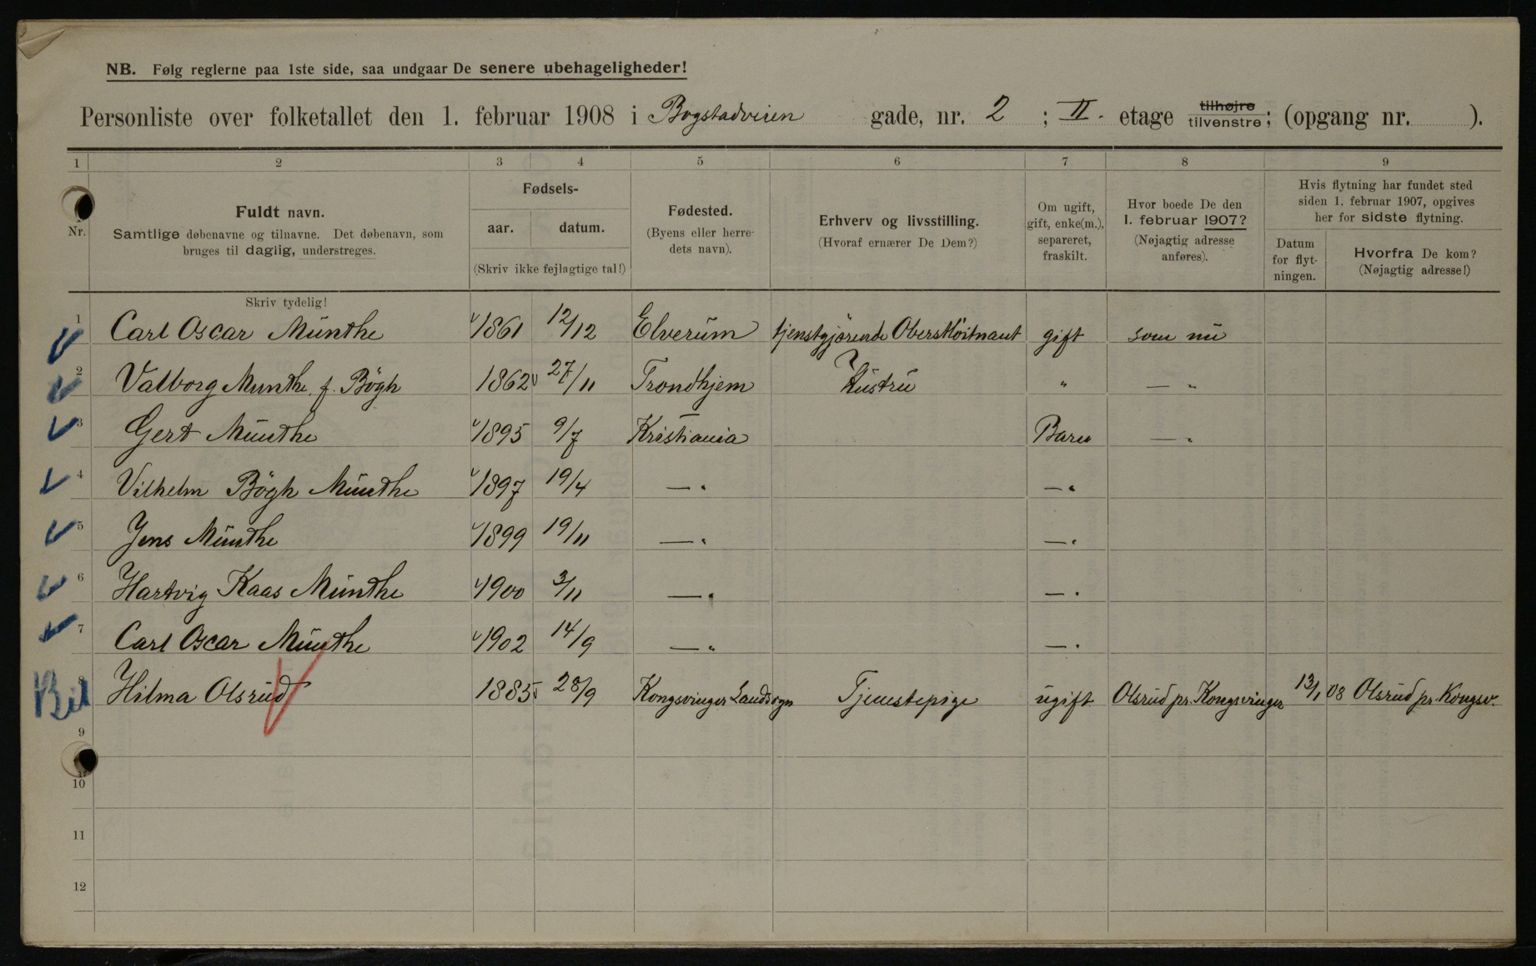 NB. Følg reglerne paa 1ste side, saa undgaar De senere ubehageligheder!
Personliste over folketallet den 1. februar 1908 i Bogstadveien gade, nr. 2 ; II. etage tilhøjre tilvenstre; (opgang nr. ).
1 2 3 4 5 6 7 8 9
Nr.
Fuldt navn.
Samtlige døbenavne og tilnavne. Det døbenavn, som
bruges til daglig, understreges.
Fødsels-
aar. datum.
(Skriv ikke fejlagtige tal!)
Fødested.
(Byens eller herre-
dets navn).
Erhverv og livsstilling.
(Hvoraf ernærer De Dem?)
Om ugift,
gift, enke(m.),
separeret,
fraskilt.
Hvor boede De den
1. februar 1907?
(Nøjagtig adresse
anføres).
Hvis flytning har fundet sted
siden 1. februar 1907, opgives
her for sidste flytning.
Datum
for flyt-
ningen.
Hvorfra De kom?
(Nøjagtig adresse!)
Skriv tydelig!
1 Carl Oscar Munthe 1861 12/12 Elverum tjenstgjørende Oberstløitnant gift som nu
2 Valborg Munthe f. Bögh 1862 27/11 Trondhjem Hustru " — "
3 Gert Munthe 1895 9/7 Kristiania Barn — "
4 Vilhelm Bögh Munthe 1897 19/4 — " — "
5 Jens Munthe 1899 19/11 — " — "
6 Hartvig Kaas Munthe 1900 3/11 — " — "
7 Carl Oscar Munthe 1902 14/9 — " — "
8 Hilma Olsrud 1885 28/9 Kongsvinger Landsogn Tjenestepige ugift Olsrud pr. Kongsvinger 13/1 08 Olsrud pr. Kongsv.
9
10
11
12